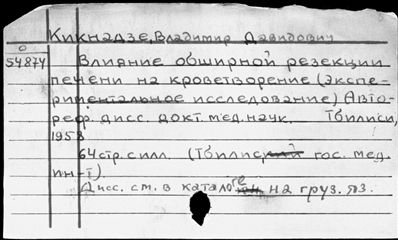 Кикнадзе, Владимир Давидович
54874 Влияние обширной резекции
печени на кроветворение (экспе-
риментальное исследование) Авто-
реф. дисс. докт. мед. наук. Тбилиси,
1958
64 стр. с илл. (Тбилис гос. мед.
ин-т)
Дисс. см. в каталоге на груз. яз.